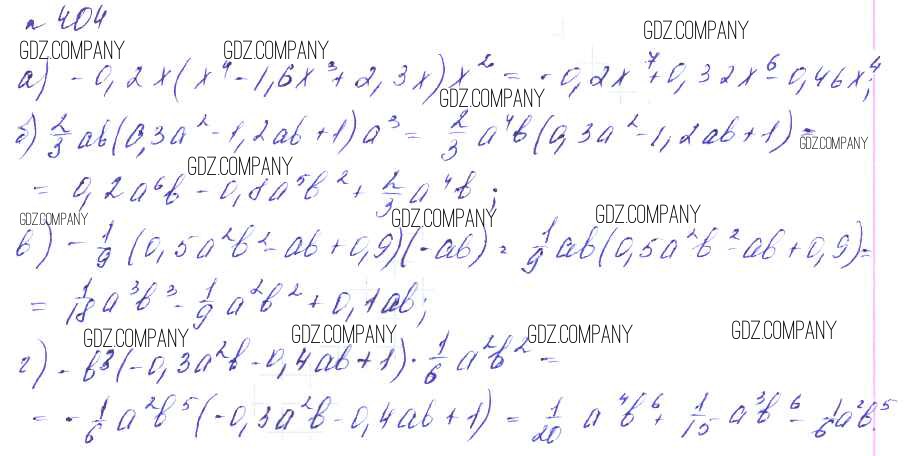 № 404
GDZ.COMPANY GDZ.COMPANY GDZ.COMPANY
а) - 0,2x(x⁴ - 1,6x³ + 2,3x)x² = - 0,2x⁷ + 0,32x⁶ - 0,46x⁴;
GDZ.COMPANY
б) 2/3 ab(0,3a² - 1,2ab + 1)a³ = 2/3 a⁴b(0,3a² - 1,2ab + 1) =
GDZ.COMPANY GDZ.COMPANY
= 0,2a⁶b - 0,8a⁵b² + 2/3 a⁴b;
GDZ.COMPANY GDZ.COMPANY GDZ.COMPANY
в) - 1/9 (0,5a²b² - ab + 0,9)(-ab) = 1/9 ab(0,5a²b² - ab + 0,9) =
= 1/18 a³b³ - 1/9 a²b² + 0,1ab;
GDZ.COMPANY GDZ.COMPANY GDZ.COMPANY GDZ.COMPANY
г) - b³(-0,3a²b - 0,4ab + 1) · 1/6 a²b² =
= - 1/6 a²b⁵(-0,3a²b - 0,4ab + 1) = 1/20 a⁴b⁶ + 1/15 a³b⁶ - 1/6 a²b⁵.